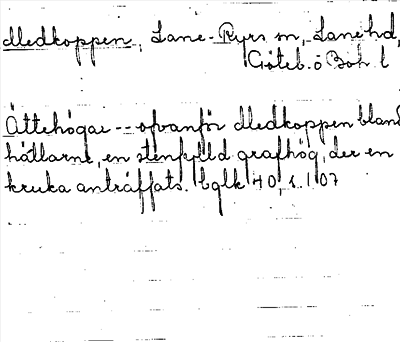 Medkoppen, Lane-Ryrs sn, Lanehd,
Göteb. o Boh l
Ättehögar -- ofvanför Medkoppen bland
hällarne, en stenfylld grafhög, der en
kruka anträffats.